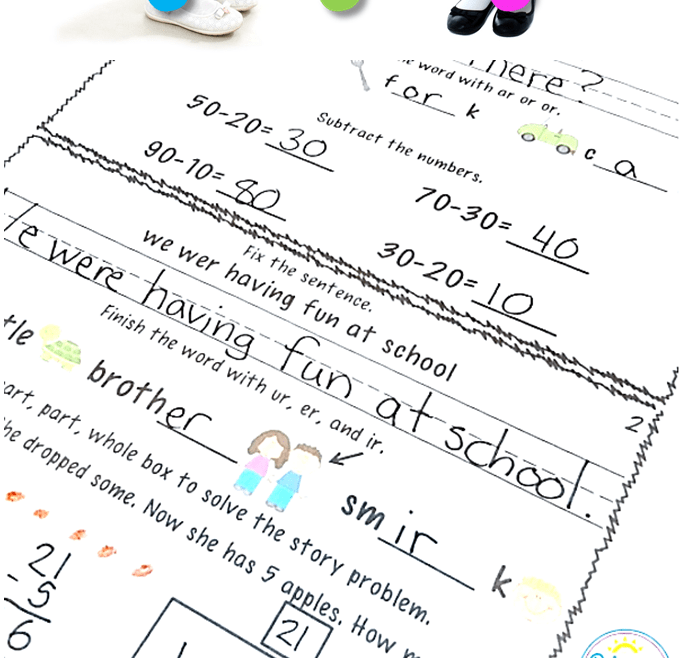 here?
word with ar or or.
for k
c a
Subtract the numbers.
50-20= 30
70-30= 40
90-10= 80
30-20= 10
Fix the sentence.
we wer having fun at school
We were having fun at school.
2
Finish the word with ur, er, and ir.
tle
brother
smir k
part, part, whole box to solve the story problem.
he dropped some. Now she has 5 apples. How
21
- 5
6
21